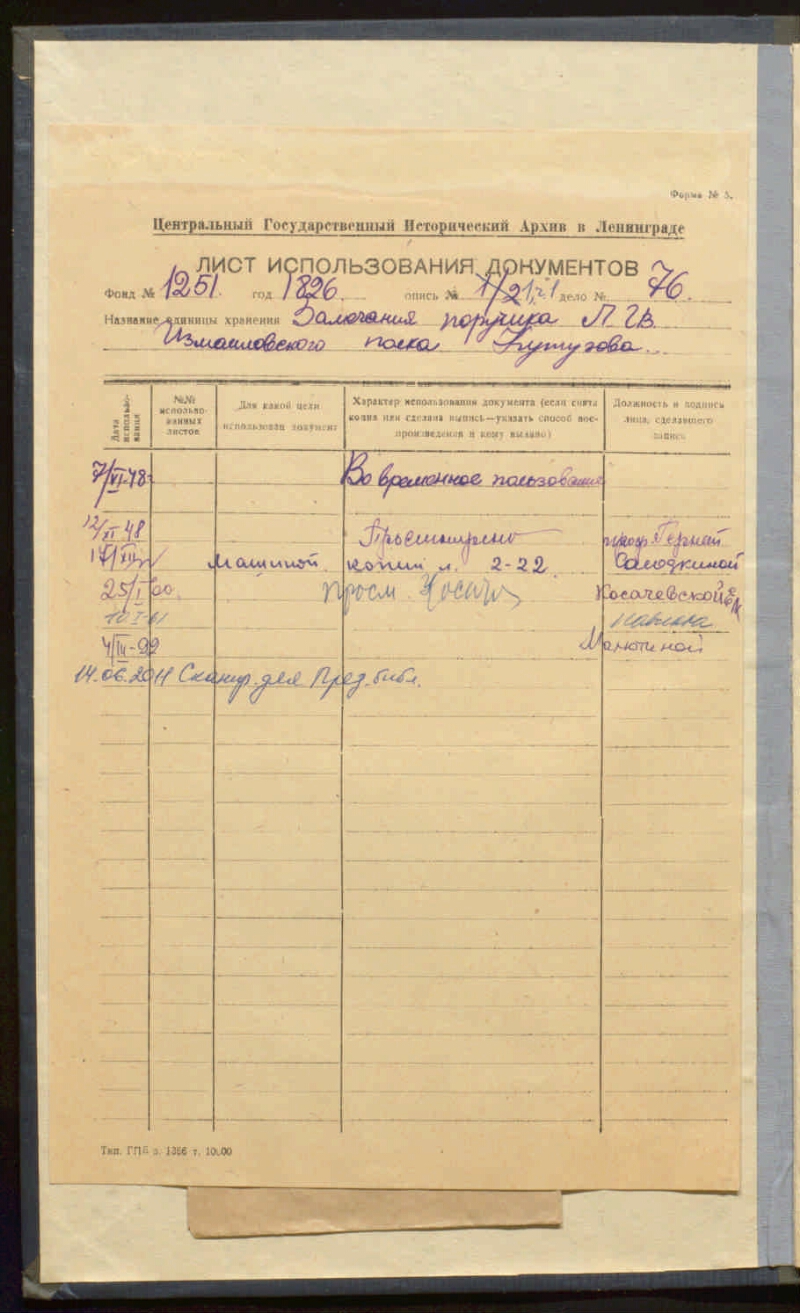 Форма № 5.
Центральный Государственный Исторический Архив в Ленинграде
ЛИСТ ИСПОЛЬЗОВАНИЯ ДОКУМЕНТОВ
Фонд № 1251. год 1826. опись № дело № 76.
Название единицы хранения Замечания поручика Л Гв
Измаиловского полка Кутузова.
Дата использования
№№ использованных листов
Для какой цели использован документ
Характер использования документа (если снята копия или сделана выпись—указать способ воспроизведения и кому выдано)
Должность и подпись лица, сделавшего запись
7/VI-48 Во временное пользование
12/XI 48 Просмотрено проф.
Машиной копии л. 2-22
25/I 60. Просм. Косачевской
10 I-61
4/III-92 Малютиной
14.06.2011 Сканир. для През. библ.
Тип. ГПБ з. 1356 т. 10.00